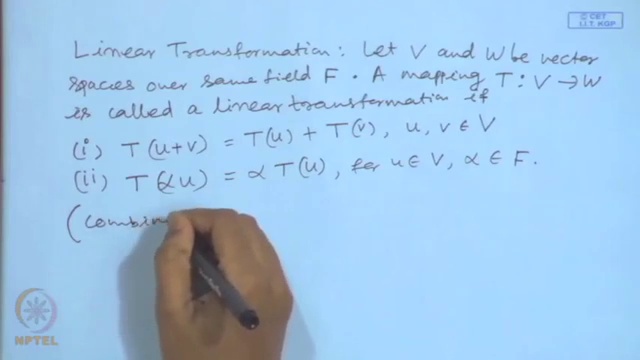 © CET
I.I.T. KGP
Linear Transformation: Let V and W be vector
spaces over same field F. A mapping T: V → W
is called a linear transformation if
(i) T(u+v) = T(u) + T(v), u, v ∈ V
(ii) T(αu) = α T(u), for u ∈ V, α ∈ F.
(Combin
NPTEL